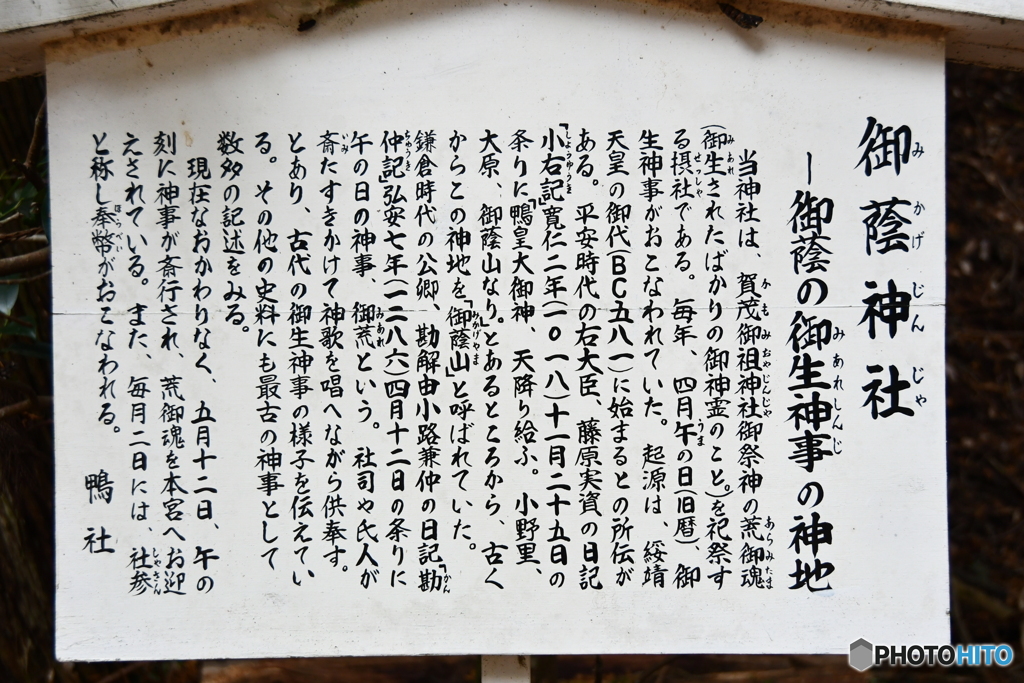 御蔭神社
みかげじんじゃ
―御蔭の御生神事の神地
みあれしんじ
当神社は、賀茂御祖神社御祭神の荒御魂
かもみおやじんじゃ
あらみたま
(御生されたばかりの御神霊のこと。)を祀祭す
みあれ
る摂社である。毎年、四月午の日(旧暦)、御
せっしゃ
うま
生神事がおこなわれていた。起源は、綏靖
天皇の御代(BC五八一)に始まるとの所伝が
ある。平安時代の右大臣、藤原実資の日記
「小右記」寛仁二年(一〇一八)十一月二十五日の
しょうゆうき
条りに「鴨皇大御神 天降り給ふ。小野里、
大原、御蔭山なり。」とあるところから、古く
からこの神地を「御蔭山」と呼ばれていた。
みかげやま
鎌倉時代の公卿、勘解由小路兼仲の日記「勘
かん
仲記」弘安七年(一二八六)四月十二日の条りに
ちゅうき
午の日の神事、御荒という。社司や氏人が
みあれ
斎たすきかけて神歌を唱へながら供奉す。
いみ
とあり、古代の御生神事の様子を伝えてい
る。その他の史料にも最古の神事として
数多の記述をみる。
現在なおかわりなく、五月十二日、午の
刻に神事が斎行され、荒御魂を本宮へお迎
えされている。また、毎月二日には、社参
しゃさん
と称し奉幣がおこなわれる。
ほうべい
鴨社
PHOTOHITO